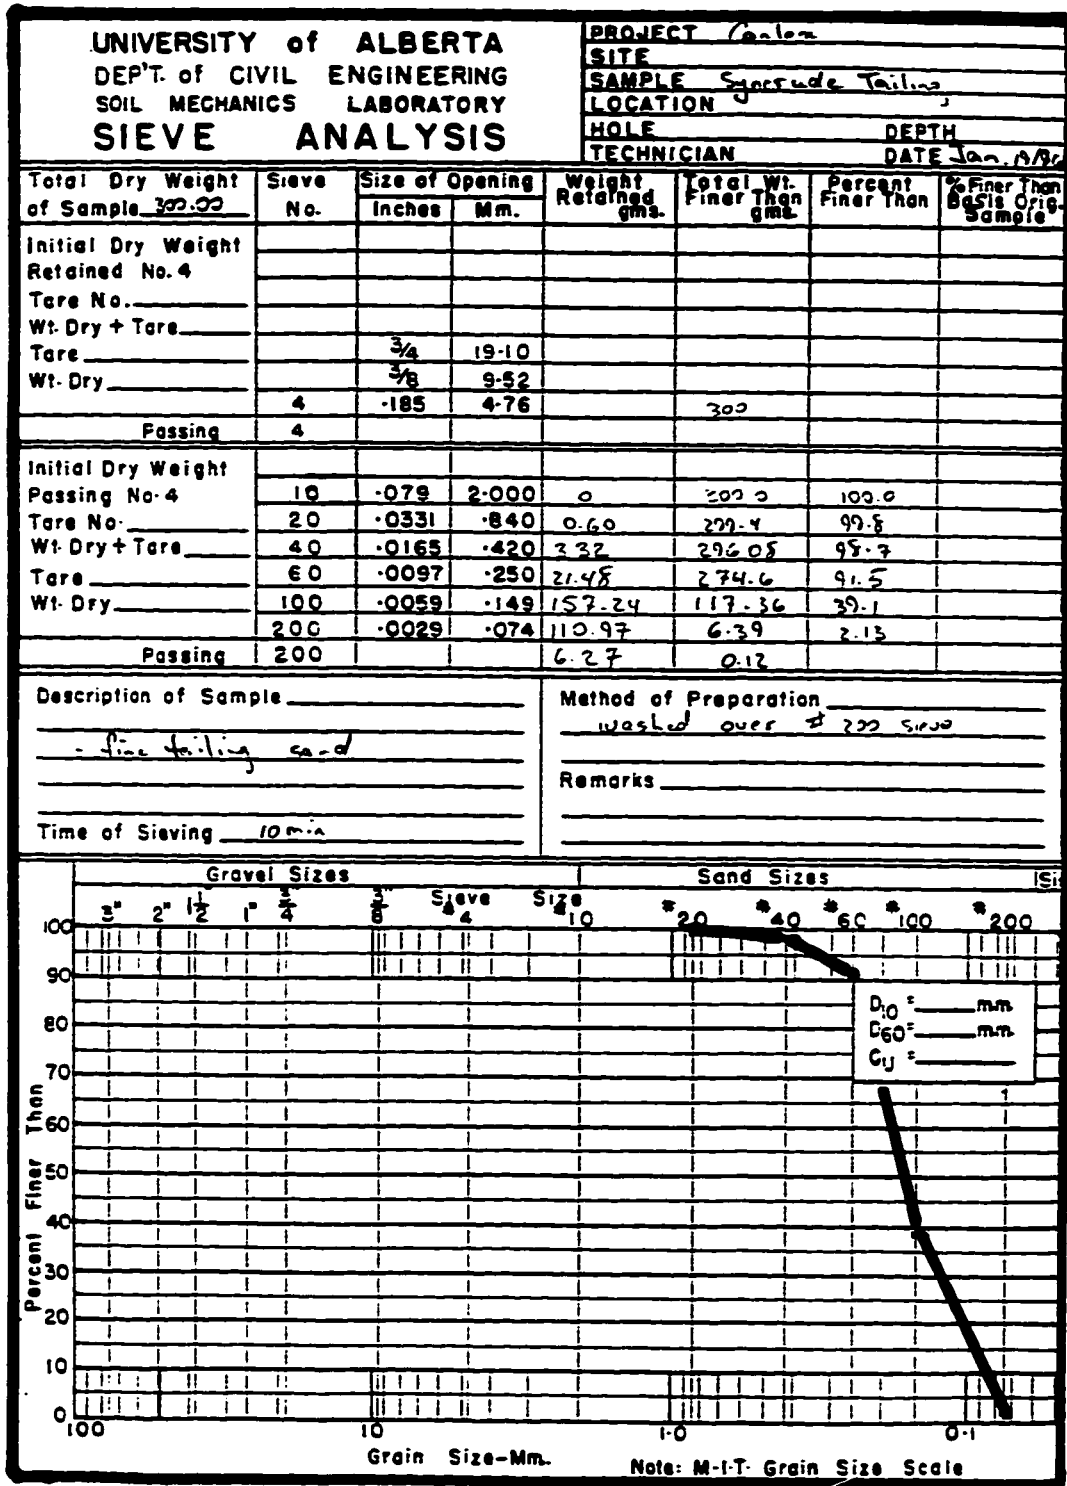 UNIVERSITY of ALBERTA
DEP'T. of CIVIL ENGINEERING
SOIL MECHANICS LABORATORY
SIEVE ANALYSIS
PROJECT
SITE
SAMPLE Syncrude Tailing
LOCATION
HOLE DEPTH
TECHNICIAN DATE Jan.
Total Dry Weight of Sample 300.00
Sieve No.
Size of Opening
Inches Mm.
Weight Retained gms.
Total Wt. Finer Than gms.
Percent Finer Than
% Finer Than Basis Orig. Sample
Initial Dry Weight
Retained No. 4
Tare No.
Wt. Dry + Tare
Tare 3/4 19.10
Wt. Dry 3/8 9.52
4 .185 4.76 300
Passing 4
Initial Dry Weight
Passing No. 4 10 .079 2.000 0 300.0 100.0
Tare No. 20 .0331 .840 0.60 299.4 99.8
Wt. Dry + Tare 40 .0165 .420 3.32 296.08 98.7
Tare 60 .0097 .250 21.48 274.6 91.5
Wt. Dry 100 .0059 .149 157.24 117.36 39.1
200 .0029 .074 110.97 6.39 2.13
Passing 200 6.27 0.12
Description of Sample
- fine tailing sand
Time of Sieving 10 min
Method of Preparation
washed over # 200 sieve
Remarks
Gravel Sizes Sand Sizes
Sieve Size
2" 1½" 1" ¾" ⅜" #4 #10 #20 #40 #60 #100 #200
100
90
80
70
60
50
40
30
20
10
0
Percent Finer Than
D10 = mm
D60 = mm
CU =
100 10 1.0 0.1
Grain Size-Mm.
Note: M-I-T- Grain Size Scale